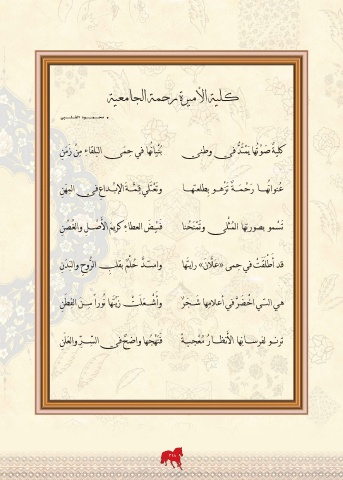 كلية الأميرة رحمة الجامعية
كليةٌ صَوْتُها يَمْتَدُّ في وطني بُنْيانُها في حِمَى البلقاءِ مِنْ زَمَنِ
عُنوانُهـا رَحْمَـةٌ تَزْهـو بطلعتهـا وتَعْتَلي قِمَّـةَ الإبْـداعِ فـي المِهَنِ
تَسْمو بصورتِها المُثْلى وتَمْنَحُنا فَيْضَ العطاءِ كريمَ الأَصْلِ والغُصُنِ
قد أَطْلَقَتْ في حِمى «عَلّان» رايتَها واستَدَّ حُلْمٌ بقلبِ الرَّوحِ والبَدَنِ
هي التي اخْضَرَّ في أعلامِها شَجَرٌ وأَشْعَلَتْ زَيْتَها نُوراً مِنَ الفِطَنِ
ترنـو لفرسانِها الأَنظـارُ مُعْجَبـةً فَنَهْجُها واضحٌ في السِّـرِّ والعَلَنِ